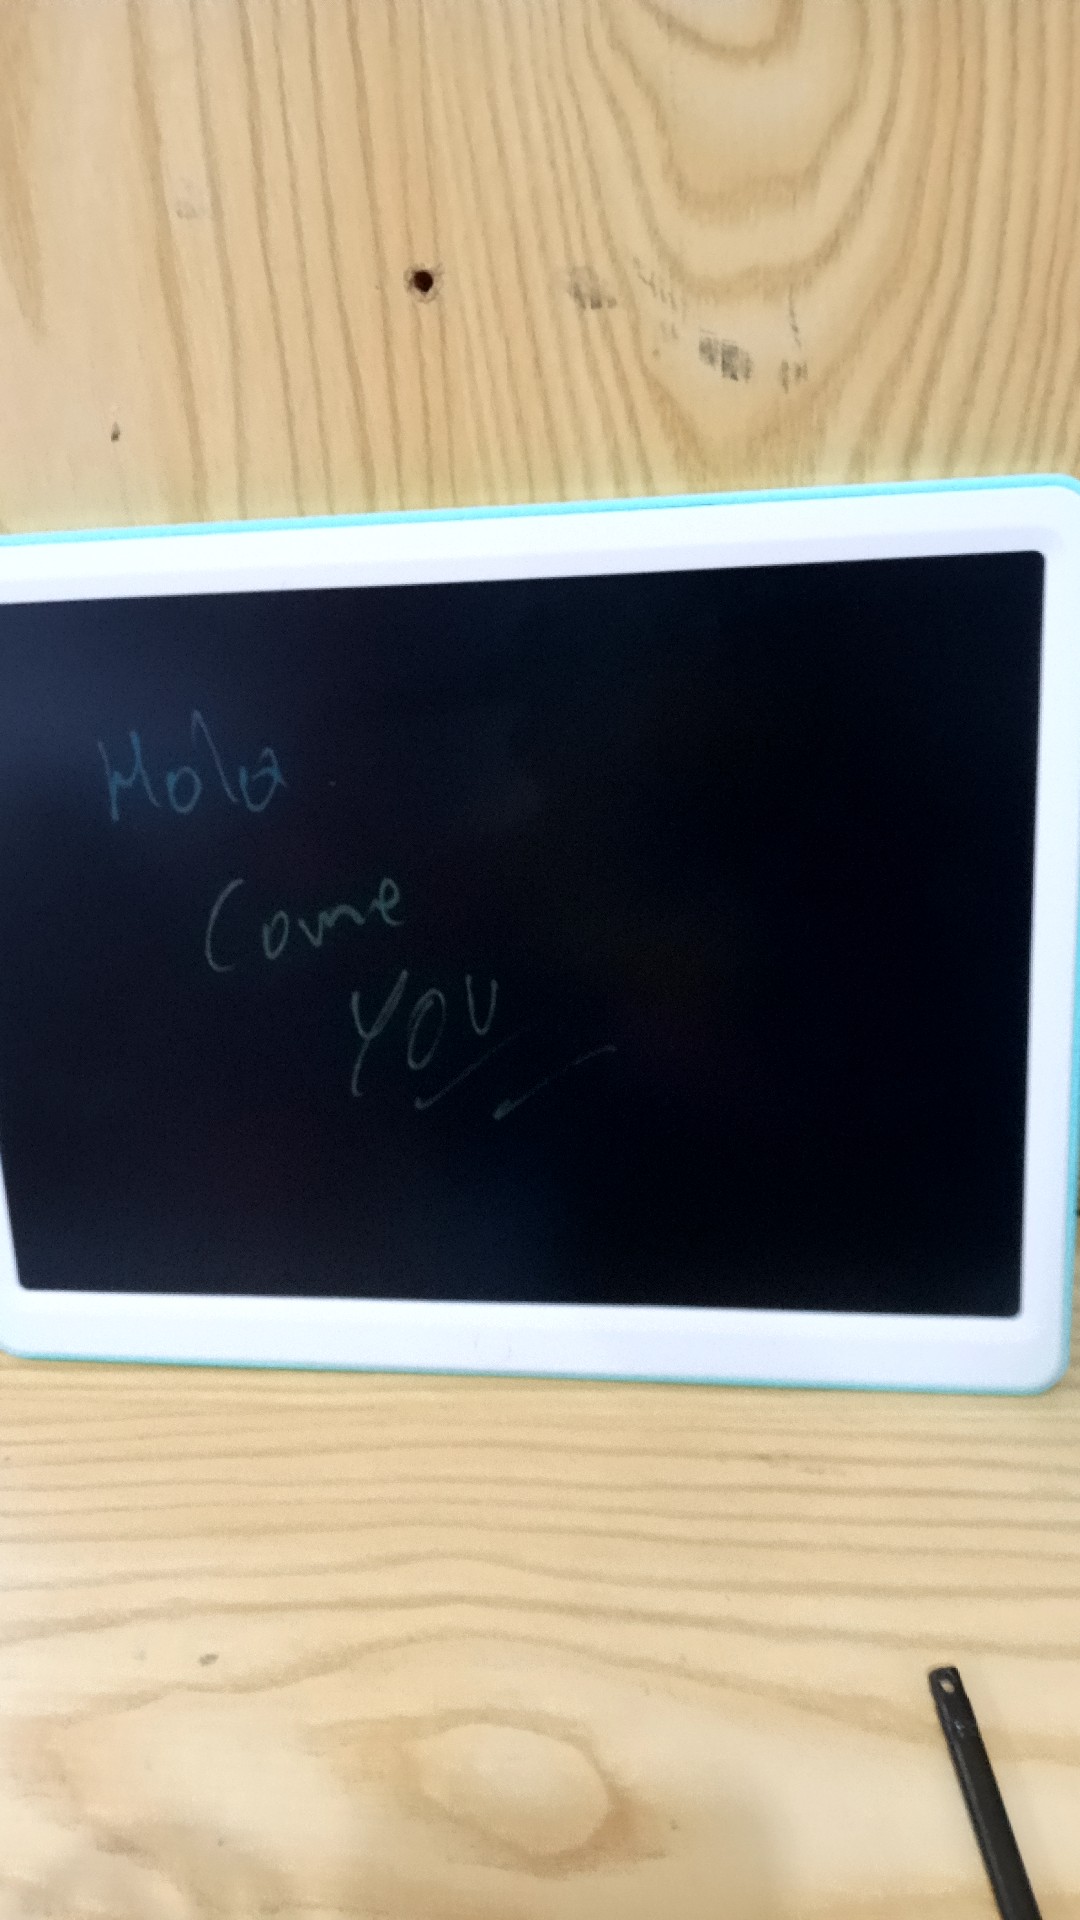 Hola
Come
YOU